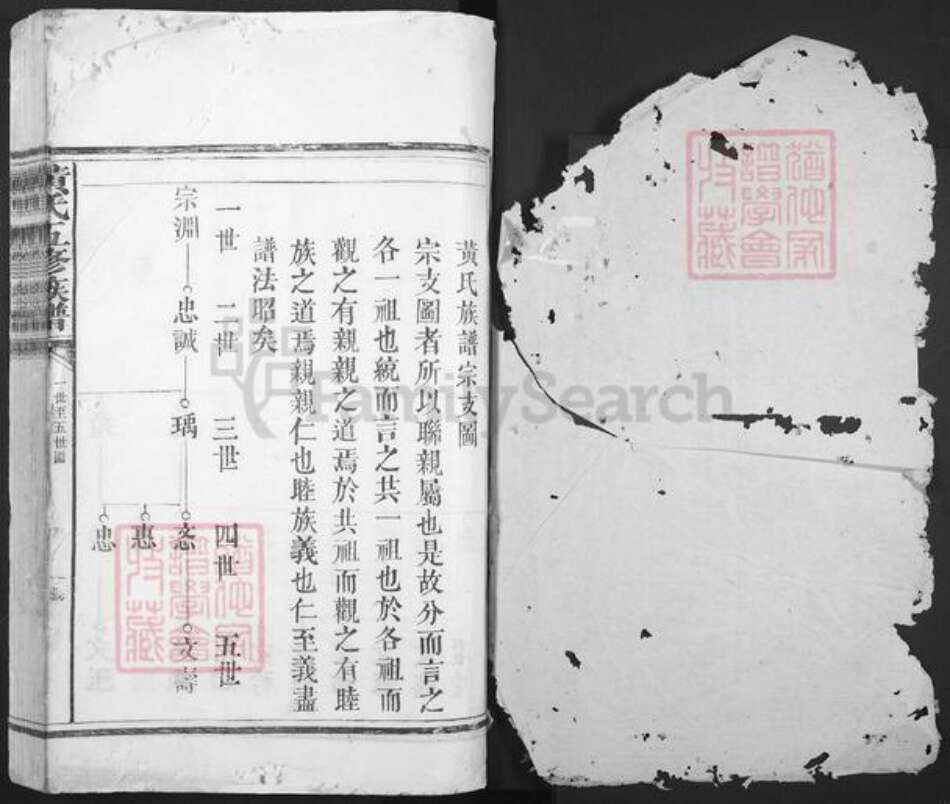 黃氏族譜宗支圖
宗支圖者所以聯親屬也是故分而言之
各一祖也統而言之共一祖也於各祖而
觀之有親親之道焉於共祖而觀之有睦
族之道焉親親仁也睦族義也仁至義盡
譜法昭矣
一世 二世 三世 四世 五世
宗淵 忠誠 瑀 忞 文壽
惠
忠
黃氏五修族譜
一世至五世圖
FamilySearch